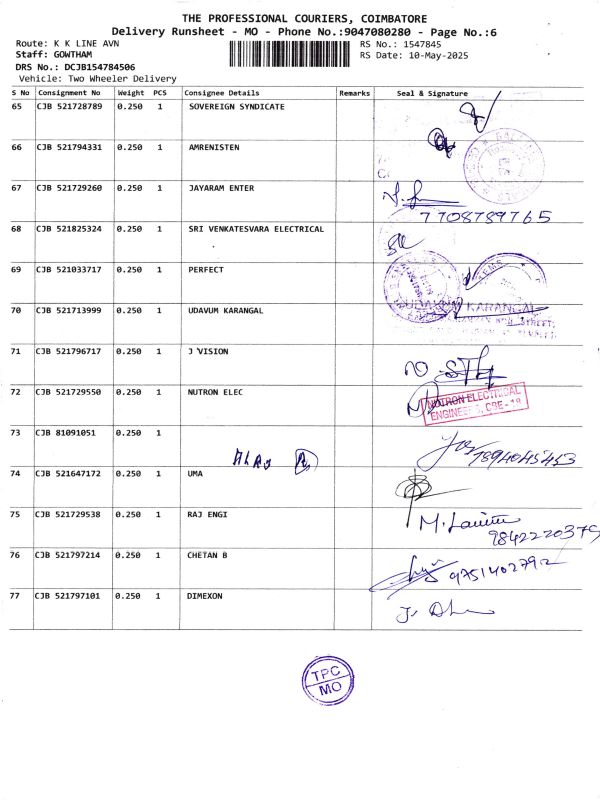 THE PROFESSIONAL COURIERS, COIMBATORE
Delivery Runsheet - MO - Phone No.:9047080280 - Page No.:6
Route: K K LINE AVN
RS No.: 1547845
Staff: GOWTHAM
RS Date: 10-May-2025
DRS No.: DCJB154784506
Vehicle: Two Wheeler Delivery
S No Consignment No Weight PCS Consignee Details Remarks Seal & Signature
65 CJB 521728789 0.250 1 SOVEREIGN SYNDICATE
66 CJB 521794331 0.250 1 AMRENISTEN
67 CJB 521729260 0.250 1 JAYARAM ENTER
7708789765
68 CJB 521825324 0.250 1 SRI VENKATESVARA ELECTRICAL
69 CJB 521033717 0.250 1 PERFECT
70 CJB 521713999 0.250 1 UDAVUM KARANGAL
UDAVUM KARANGAL
STREET
71 CJB 521796717 0.250 1 J VISION
72 CJB 521729550 0.250 1 NUTRON ELEC
NUTRON ELECTRICAL
ENGINEERS, CBE-18
73 CJB 81091051 0.250 1
7894045453
74 CJB 521647172 0.250 1 UMA
75 CJB 521729538 0.250 1 RAJ ENGI
9842220379
76 CJB 521797214 0.250 1 CHETAN B
9751402792
77 CJB 521797101 0.250 1 DIMEXON
TPC
MO